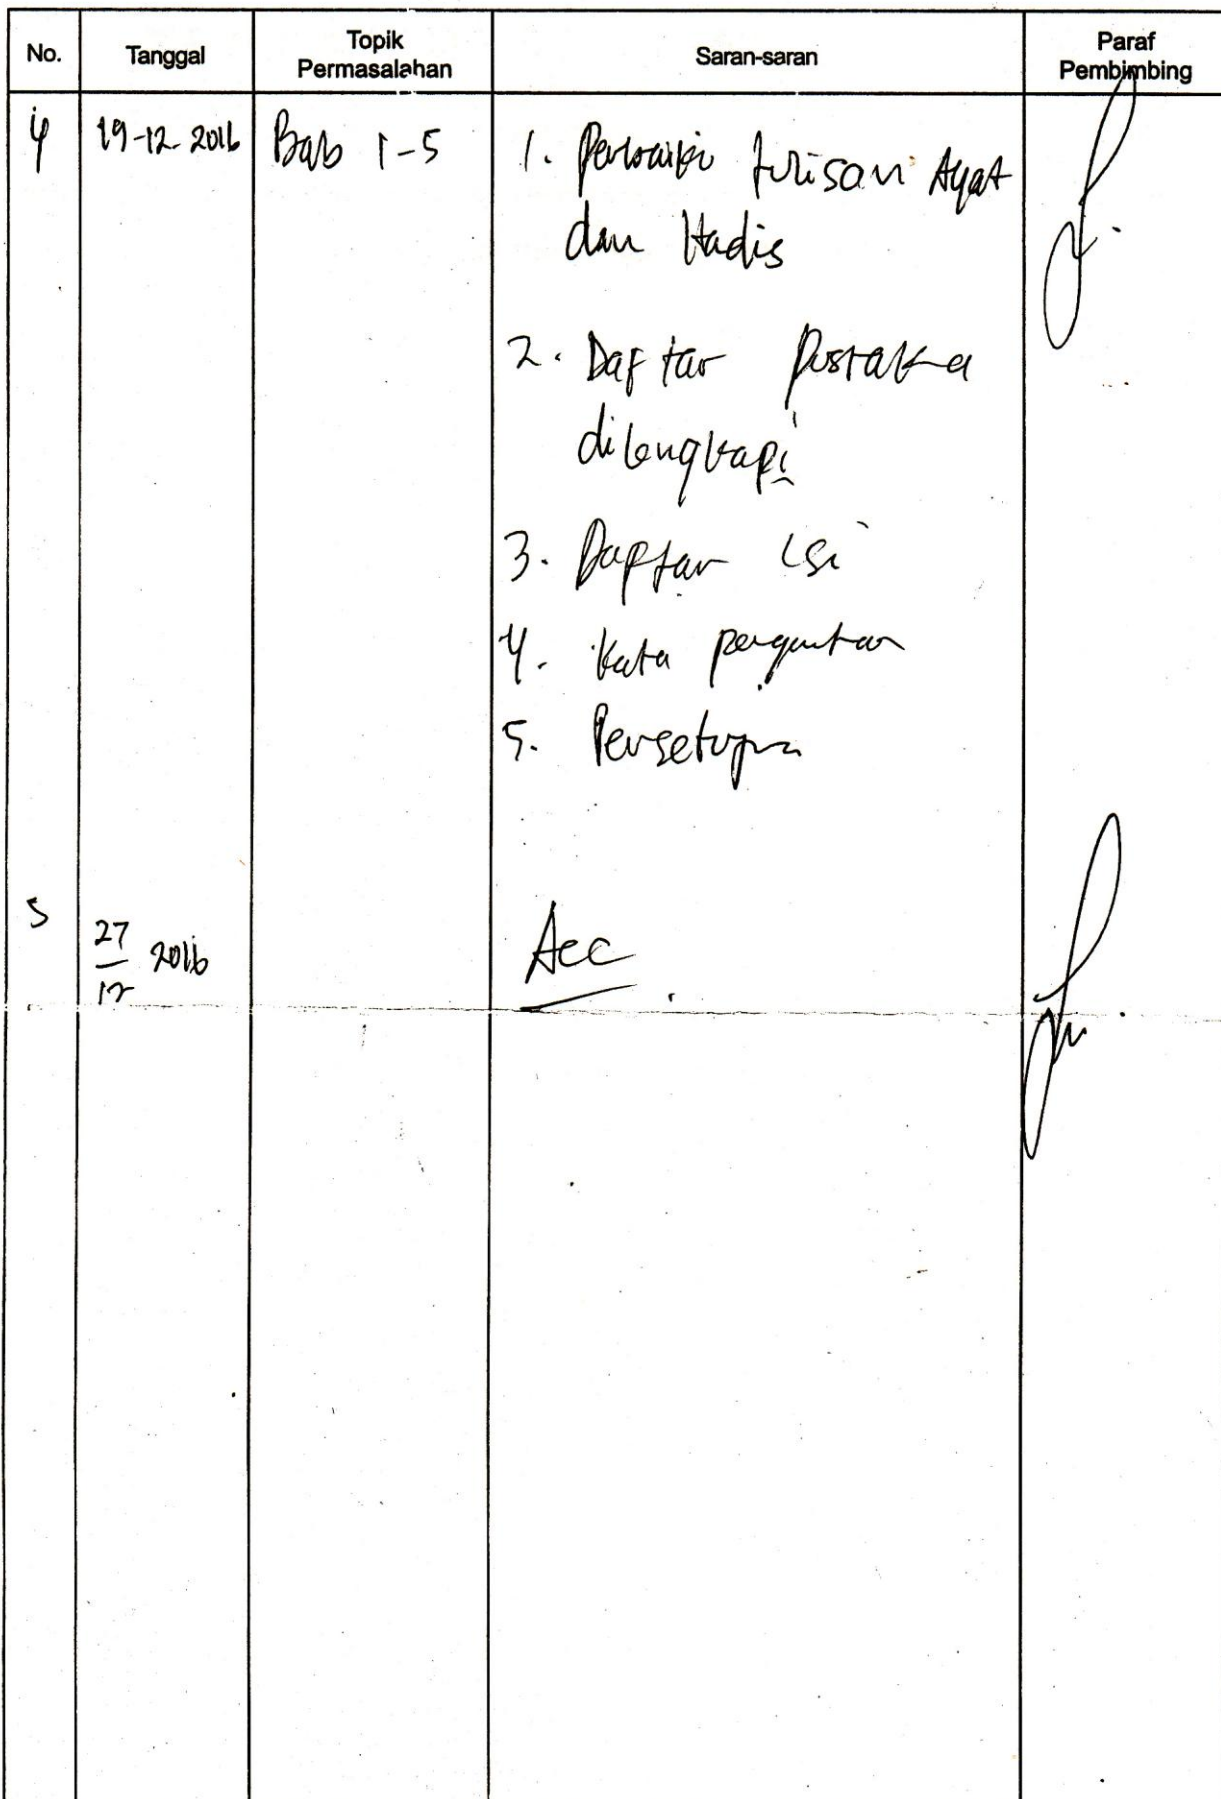 No. Tanggal Topik Permasalahan Saran-saran Paraf Pembimbing
4 19-12-2016 Bab 1-5 1. Perbaiki tulisan Ayat
dan Hadis
2. Daftar Pustaka
dilengkapi
3. Daftar isi
4. Kata pengantar
5. Persetujuan
5 27/12 2016 Acc